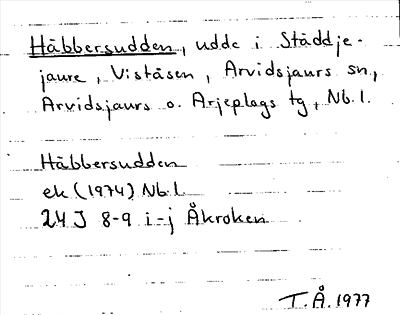 Häbbersudden, udde i Städdje-
jaure, Viståsen, Arvidsjaurs sn,
Arvidsjaurs o. Arjeplogs tg, Nb. l.
Häbbersudden
ek (1974) Nb. l.
24J 8-9 i-j Åkroken
T. Å. 1977